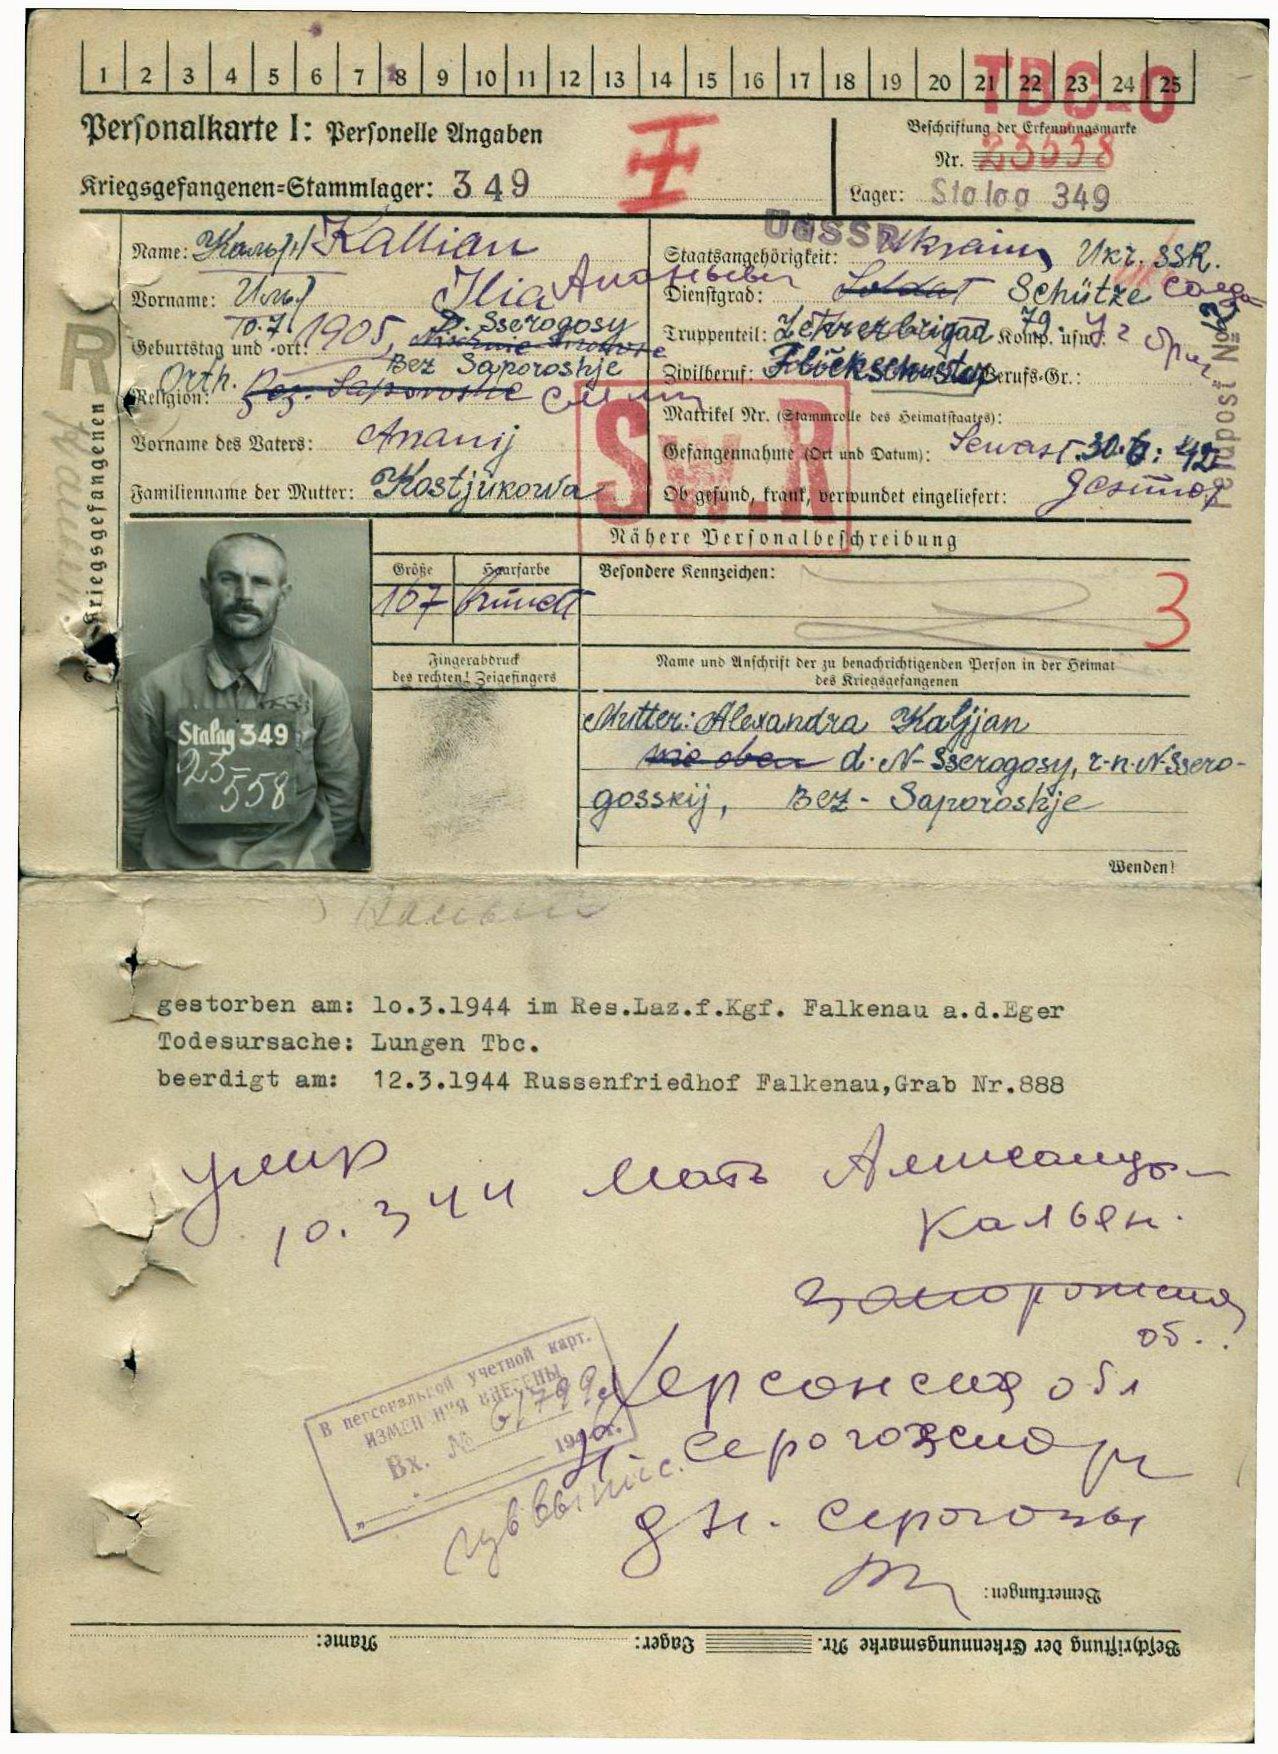 1 2 3 4 5 6 7 8 9 10 11 12 13 14 15 16 17 18 19 20 21 22 23 24 25
TBC-0
Personalkarte I: Personelle Angaben
Beschriftung der Erkennungsmarke
Nr. 23558
Kriegsgefangenen=Stammlager: 349
Lager: Stalag 349
I
UdSSR
Name: Kallian
Staatsangehörigkeit: Ukr. SSR.
Vorname: Ilia Ананьевич
Dienstgrad: Soldat Schütze солдат
Geburtstag und =ort: 10.7. 1905, D. Sserogosy
Bez Saporoshje
Truppenteil: 79. Komp. usw.:
Religion: Orth.
Zivilberuf: Berufs-Gr.:
Matrikel Nr. (Stammrolle des Heimatstaates):
Vorname des Vaters: Ananij
Gefangennahme (Ort und Datum): Sewast. 30.6.42
Familienname der Mutter: Kostjukowa
Ob gesund, krank, verwundet eingeliefert: gesund
Sw.R
R
Kriegsgefangenen
Nähere Personalbeschreibung
Größe
Haarfarbe
Besondere Kennzeichen:
167
brünett
3
Fingerabdruck
des rechten! Zeigefingers
Name und Anschrift der zu benachrichtigenden Person in der Heimat
des Kriegsgefangenen
Stalag 349
23
558
Mutter: Alexandra Kaljjan
wie oben d. N-Sserogosy, r-n. N-Ssero-
gosskij, Bez - Saporoshje
Wenden!
gestorben am: 1o.3.1944 im Res.Laz.f.Kgf. Falkenau a.d.Eger
Todesursache: Lungen Tbc.
beerdigt am: 12.3.1944 Russenfriedhof Falkenau,Grab Nr.888
умер
10.3 44 Мать Александра
Кальян.
Запорожская
об.
Херсонская обл
Н. Серогозский р-н
д Н. Серогозы
В персональной учетной карт.
ИЗМЕНЕНИЯ ВНЕСЕНЫ
Вх. №
194 г.
Bemerkungen:
Beschriftung der Erkennungsmarke Nr. Lager: Name: